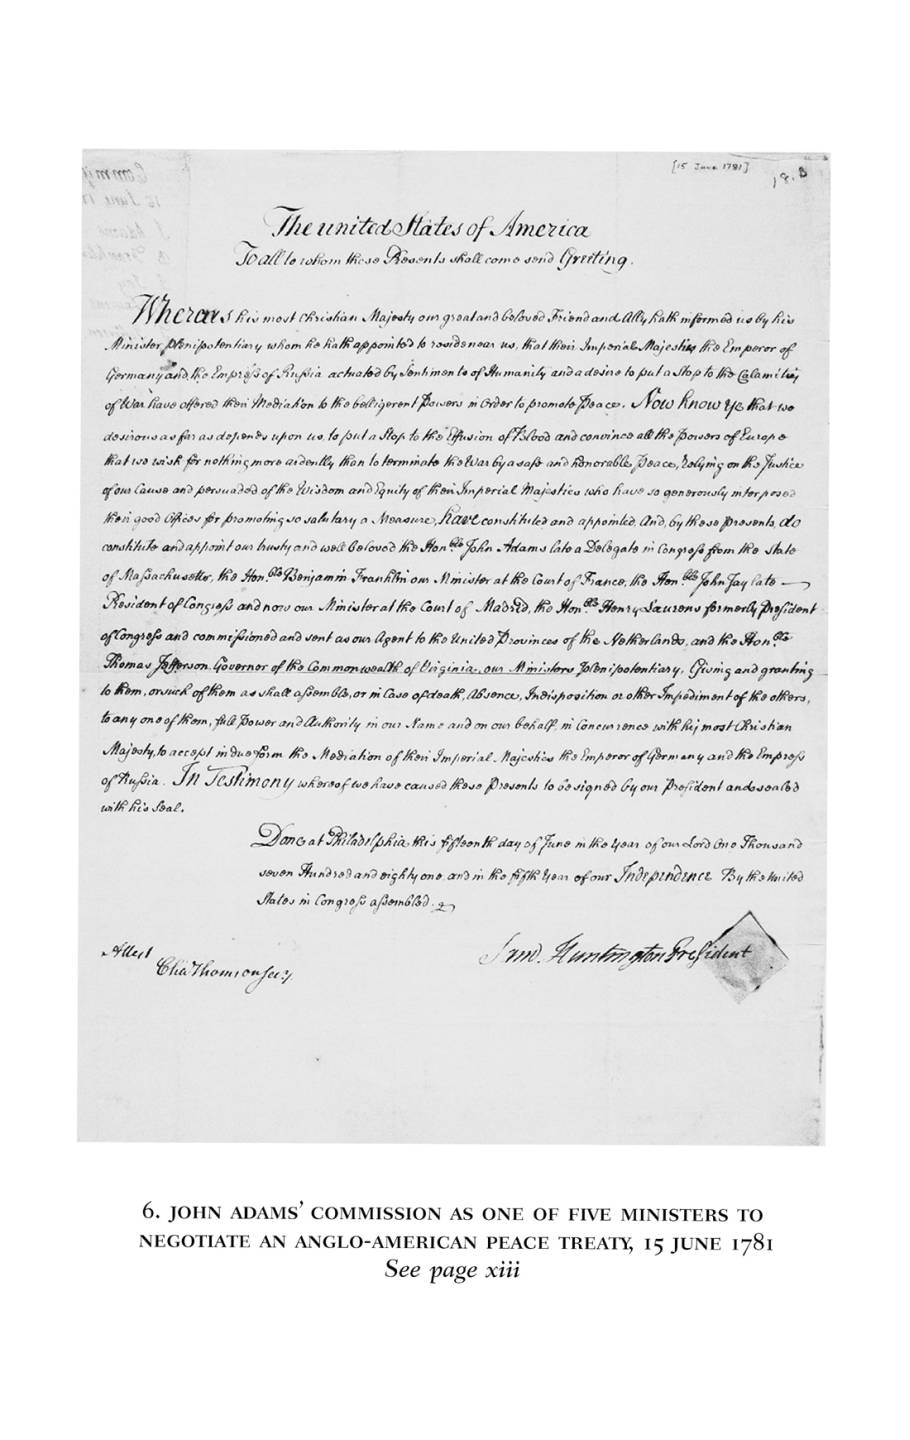 [15 June 1781]
18. B
The united States of America
To all to whom these Presents shall come send Greeting.
Whereas his most Christian Majesty our great and beloved Friend and Ally hath informed us by his
Minister plenipotentiary whom he hath appointed to reside near us, that their Imperial Majesties the Emperor of
Germany and the Empress of Russia actuated by Sentiments of Humanity and a desire to put a Stop to the Calamities
of War have offered their Mediation to the belligerent Powers in Order to promote Peace. Now Know Ye that we
desirous as far as depends upon us, to put a Stop to the Effusion of Blood and convince all the Powers of Europe
that we wish for nothing more ardently than to terminate the War by a safe and honorable Peace, relying on the Justice
of our Cause and persuaded of the Wisdom and Equity of their Imperial Majesties who have so generously interposed
their good Offices for promoting so salutary a Measure, have constituted and appointed, And, by these presents, do
constitute and appoint our trusty and well beloved the Honble John Adams late a Delegate in Congress from the State
of Massachusetts, the Honble Benjamin Franklin our Minister at the Court of France, the Honble John Jay late
President of Congress and now our Minister at the Court of Madrid, the Honble Henry Laurens formerly President
of Congress and commissioned and sent as our Agent to the United Provinces of the Netherlands, and the Honble
Thomas Jefferson Governor of the Commonwealth of Virginia, our Ministers Plenipotentiary, Giving and granting
to them, or such of them as shall assemble, or in Case of death, Absence, Indisposition or other Impediment of the others,
to any one of them, full Power and Authority in our Name and on our behalf, in Concurrence with his most Christian
Majesty, to accept in due form the Mediation of their Imperial Majesties the Emperor of Germany and the Empress
of Russia. In Testimony whereof we have caused these Presents to be signed by our President and sealed
with his Seal.
Done at Philadelphia this fifteenth day of June in the Year of our Lord One Thousand
seven Hundred and eighty one, and in the fifth Year of our Independence By the United
States in Congress assembled.
Sam. Huntington President
Attest
Cha Thomson Secy
6. JOHN ADAMS' COMMISSION AS ONE OF FIVE MINISTERS TO
NEGOTIATE AN ANGLO-AMERICAN PEACE TREATY, 15 JUNE 1781
See page xiii